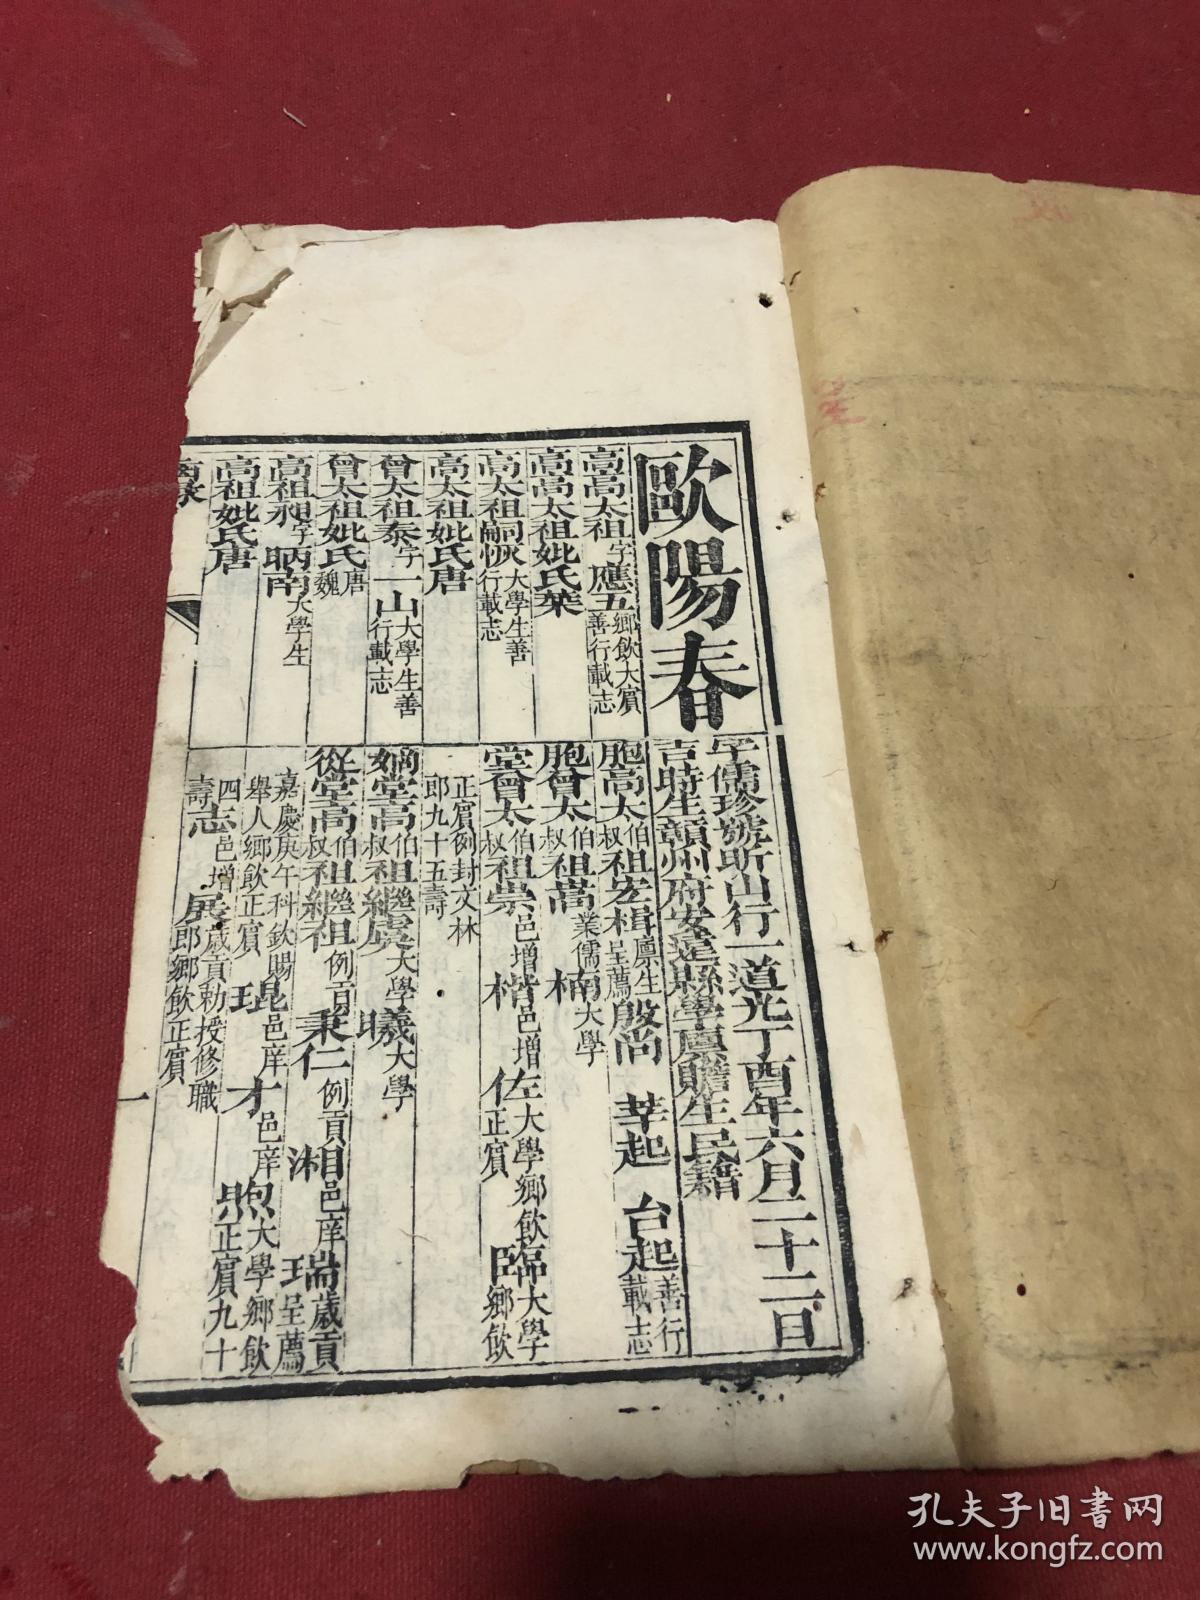 歐陽春
字儒珍號昕山行一道光丁酉年六月二十二日
吉時生贛州府安遠縣學廩膳生民籍
高高太祖字應五鄉飲大賓善行載志
高高太祖妣氏葉
高太祖嗣恢大學生善行載志
高太祖妣氏唐
曾太祖泰字一山大學生善行載志
曾太祖妣氏唐魏
高祖昶字昞南大學生
高祖妣氏唐
胞高太伯叔祖宏楫廩生呈薦殷尚 莘起 台起善行載志
胞曾太伯叔祖蒿業儒楠大學
堂曾太伯叔祖崇邑增楷邑增佐大學鄉飲正賓臨大學鄉飲
正賓例封文林郎九十五壽
嫡堂高伯叔祖繼虞大學曦大學
從堂高伯叔祖繼祖例貢秉仁例貢湘邑庠瑞歲貢呈薦
嘉慶庚午科欽賜舉人鄉飲正賓琨邑庠才邑庠煦大學鄉飲正賓九十
四壽志邑增展歲貢勅授修職郎鄉飲正賓
一
孔夫子旧书网
www.kongfz.com